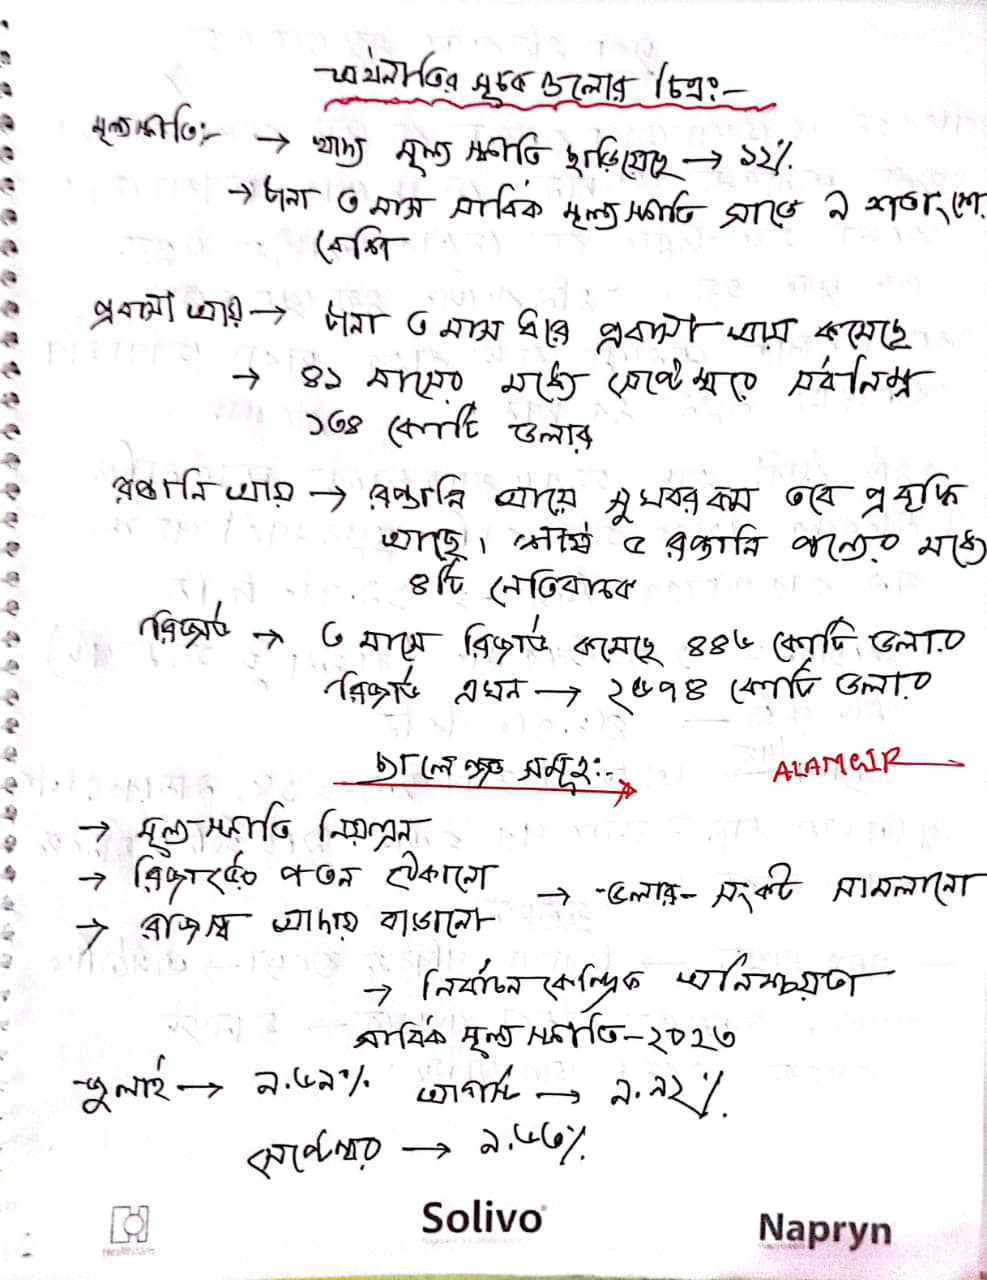 অর্থনীতির সূচক গুলোর চিত্র:-
মূল্যস্ফীতি:- → খাদ্য মূল্য স্ফীতি ছাড়িয়েছে → ১২%
→ টানা ৩ মাস সার্বিক মূল্যস্ফীতি সাড়ে ৯ শতাংশের
বেশি
প্রবাসী আয় → টানা ৩ মাস ধরে প্রবাসী আয় কমেছে
→ ৪১ মাসের মধ্যে সেপ্টেম্বরে সর্বনিম্ন
১৩৪ কোটি ডলার
রপ্তানি আয় → রপ্তানি আয়ে সুখবর কম তবে প্রবৃদ্ধি
আছে। শীর্ষ ৫ রপ্তানি পণ্যের মধ্যে
৪টি নেতিবাচক
রিজার্ভ → ৩ মাসে রিজার্ভ কমেছে ৪৪৬ কোটি ডলার
রিজার্ভ এখন → ২৬৭৪ কোটি ডলার
চ্যালেঞ্জ সমূহ:-
ALAMGIR
→ মূল্যস্ফীতি নিয়ন্ত্রন
→ রিজার্ভের পতন ঠেকানো
→ ডলার- সংকট সামলানো
→ রাজস্ব আদায় বাড়ানো
→ নির্বাচন কেন্দ্রিক অনিশ্চয়তা
সার্বিক মূল্যস্ফীতি-২০২৩
জুলাই → ৯.৬৯% আগস্ট → ৯.৯২%
সেপ্টেম্বর → ৯.৬৩%
Solivo
Napryn